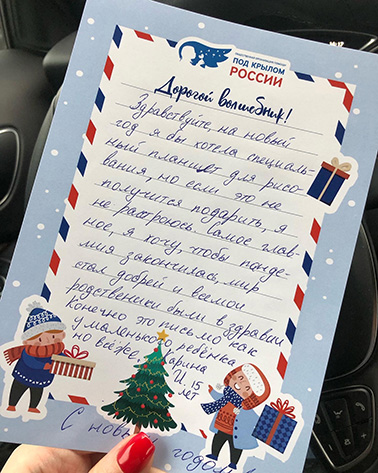 ПОД КРЫЛОМ
РОССИИ
Дорогой волшебник!
Здравствуйте, на новый
год я бы хотела специаль-
ный планшет для рисо-
вания, но если это не
получится подарить, я
не расстроюсь. Самое глав-
ное, я хочу, чтобы панде-
мия закончилась, мир
стал добрей и все мои
родственники были в здравии
Конечно это письмо как
у маленького ребёнка
но всё же, Карина
И. 15
лет
С новым годом!